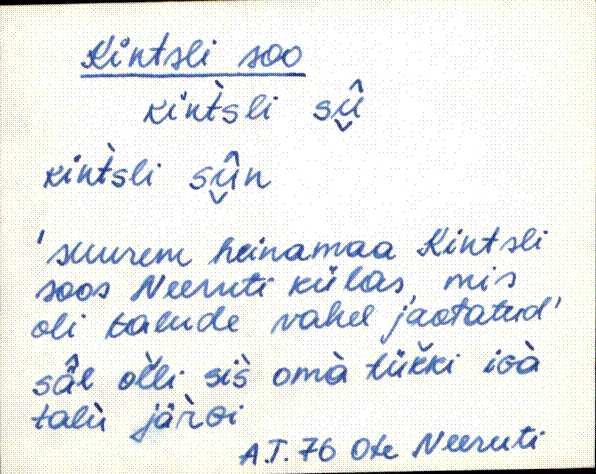 Kintsli soo
kint̀sli sû̬
kint̀sli sû̬n
'suurem heinamaa Kintsli
soos Neeruti külas, mis
oli talude vahel jaotatud'
sâl ol̀li sis̀ omà tük̀ki igà
talù jär̀gi
A.T. 76 Ote Neeruti